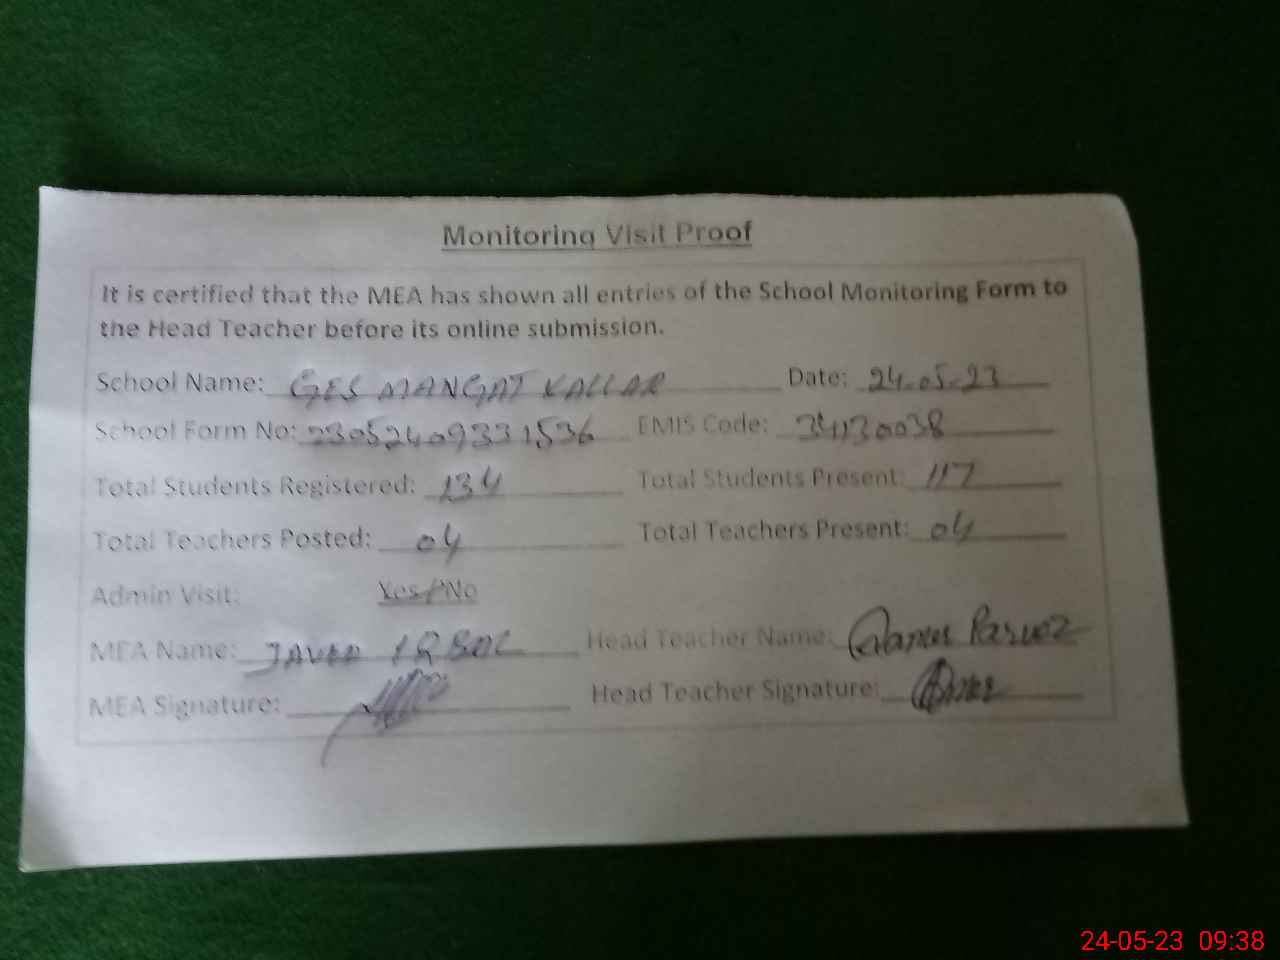 Monitoring Visit Proof
It is certified that the MEA has shown all entries of the School Monitoring Form to
the Head Teacher before its online submission.
School Name: GES MANGAT KALLAR Date: 24-05-23
School Form No: 23052409331536 EMIS Code: 34130038
Total Students Registered: 134 Total Students Present: 117
Total Teachers Posted: 04 Total Teachers Present: 04
Admin Visit: Yes / No
MEA Name: JAVED IQBAL Head Teacher Name: Parvez
MEA Signature: Head Teacher Signature:
24-05-23 09:38